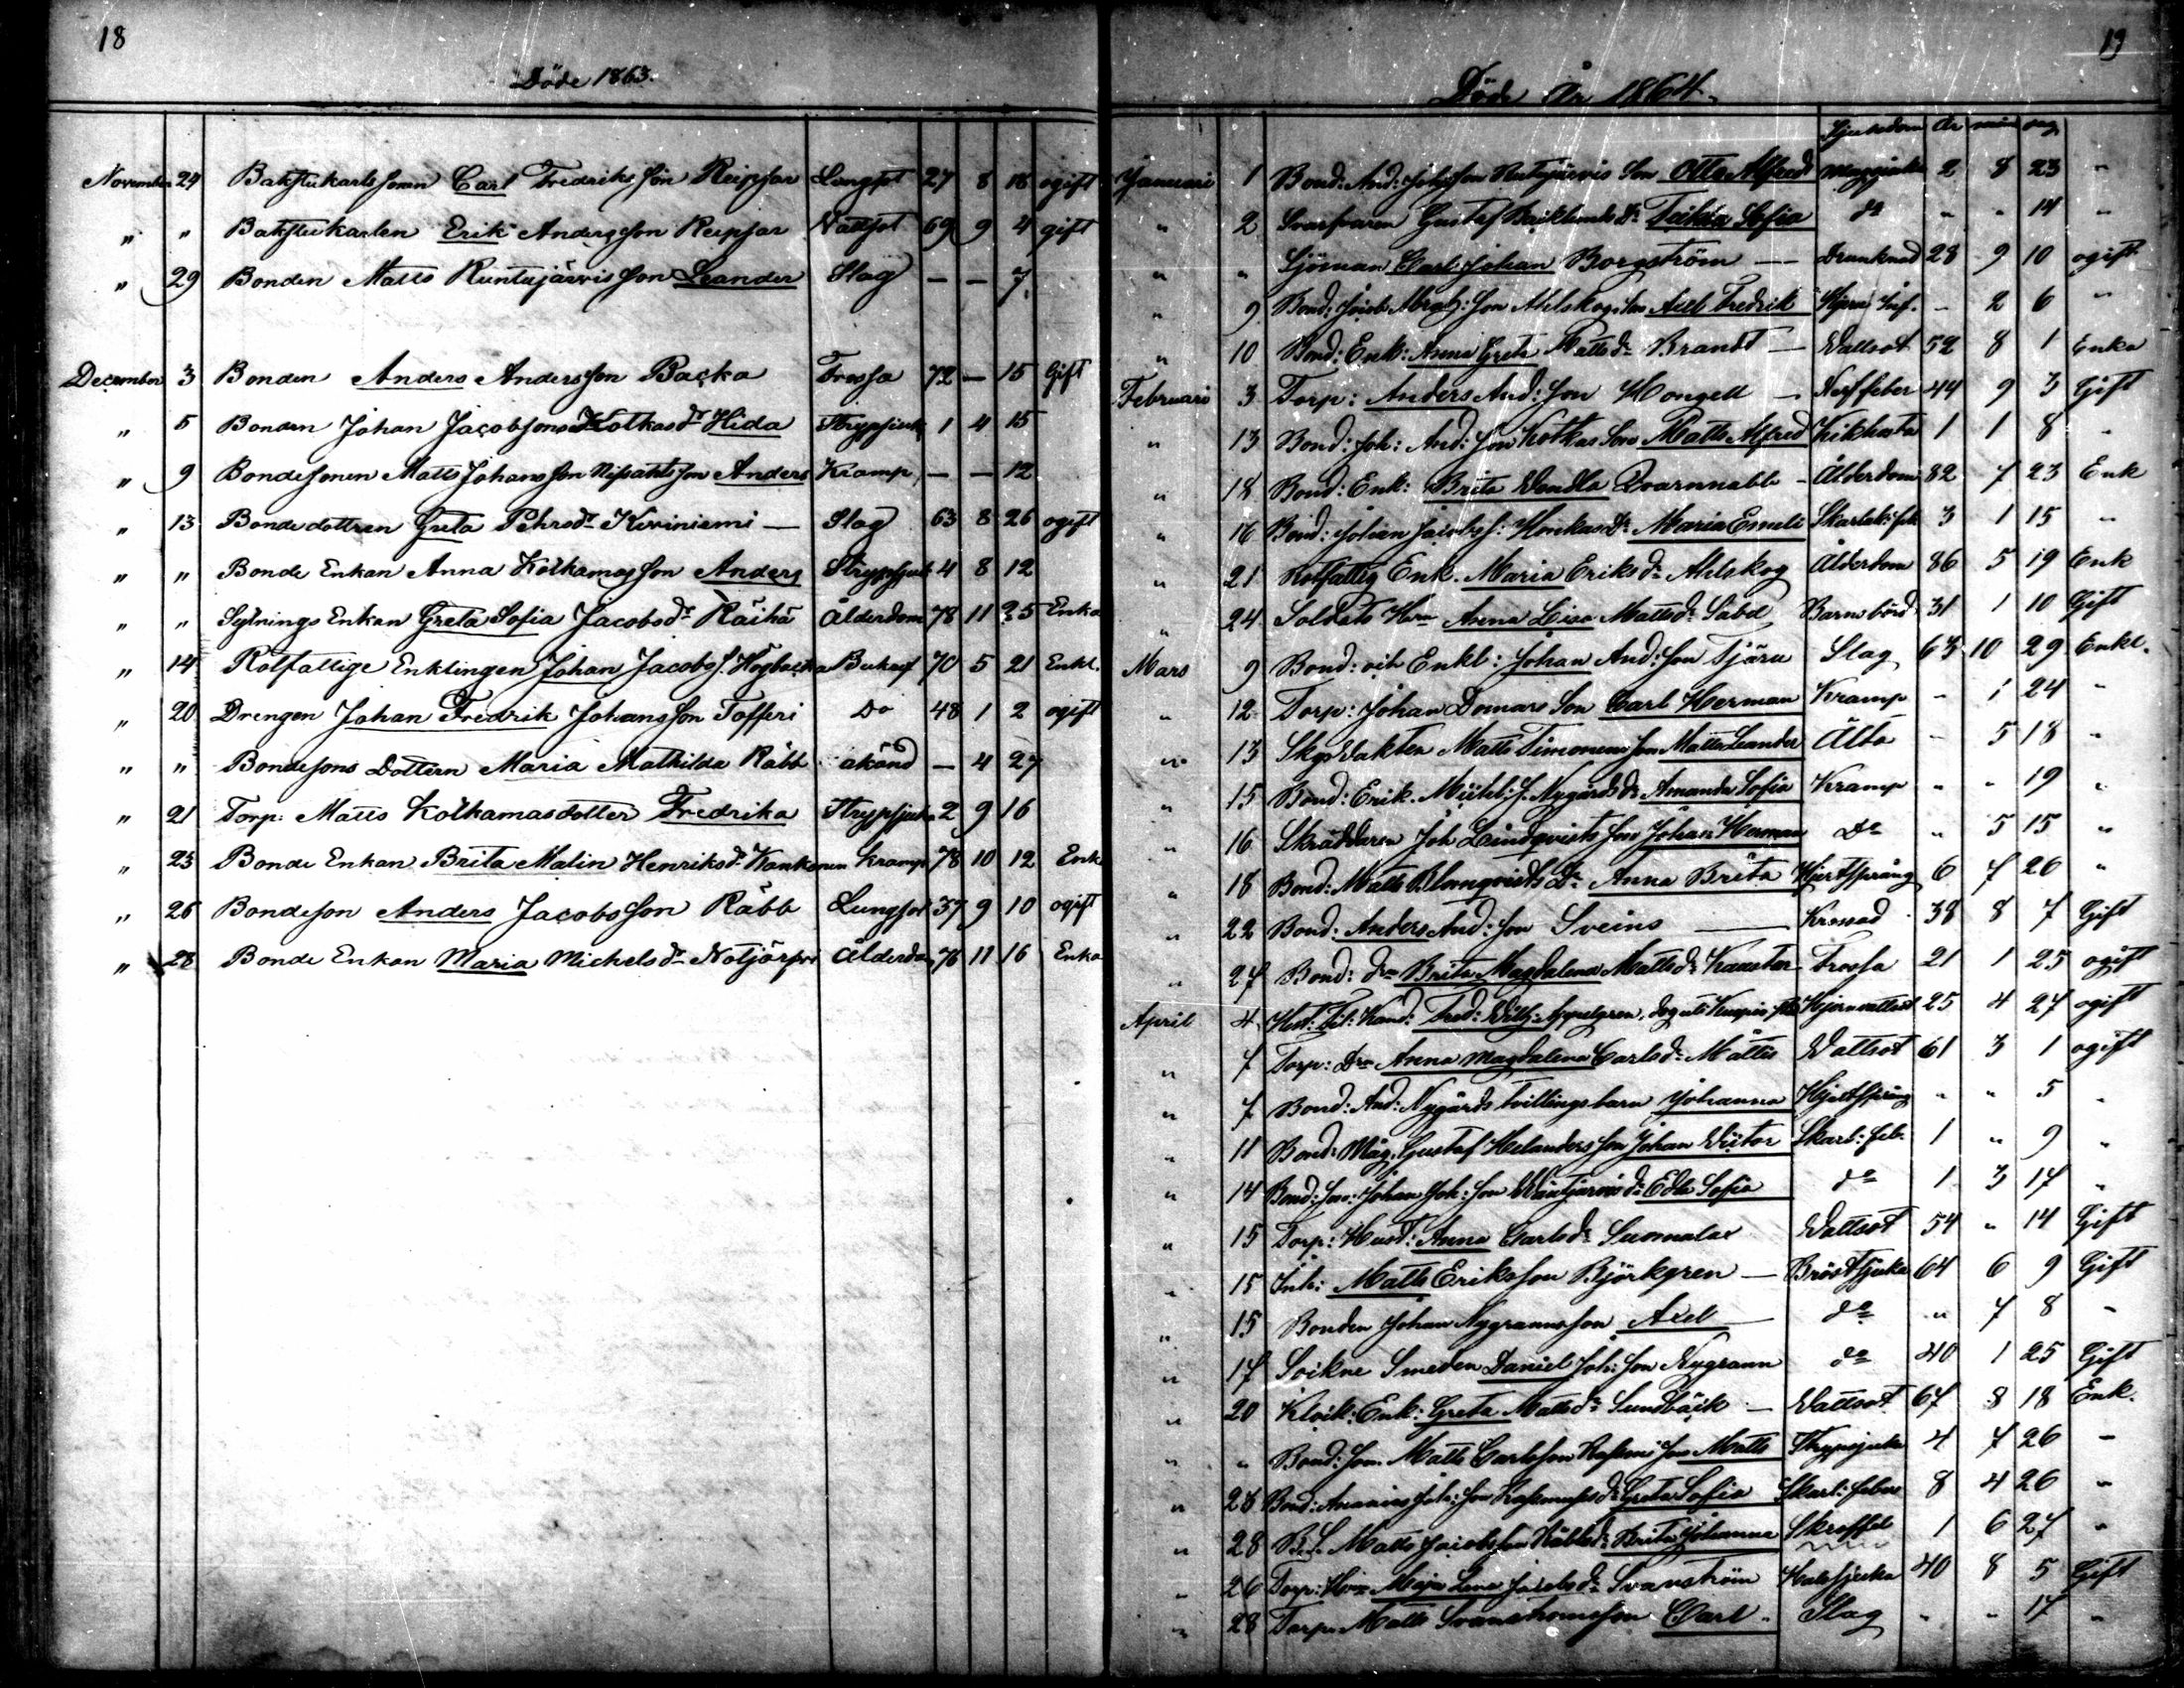 18
Döde 1863.
November 24 Bakstukarlssonen Carl Fredriksson Reipsar Lungsot 27 8 18 ogift
" " Bakstukarlen Erik Andersson Reipsar Vattsot 69 9 4 gift
" 29 Bonden Matts Runtujärvis son Leander Slag — — 7
December 3 Bonden Anders Andersson Backa Frossa 72 — 15 Gift
" 5 Bonden Johan Jacobsons Kotkas dr Hida Strypsjuk 1 4 15
" 9 Bondesonen Matts Johansson son Anders Kramp — — 12
" 13 Bondedottren Greta Pehrsdr Kiviniemi — Slag 63 8 26 ogift
" " Bonde Enkan Anna Kolkamas son Anders Strypsjuk 4 8 12
" " Sytnings Enkan Greta Sofia Jacobsdr Räihä Ålderdom 78 11 25 Enka
" 14 Rotfattige Enklingen Johan Jacobs s. Högbacka 70 5 21 Enkl.
" 20 Drengen Johan Fredrik Johansson Tofferi Do 48 1 2 ogift
" " Bondesons Dottern Maria Mathilda Räbb okänd — 4 27
" 21 Torp: Matts Kolkamas dotter Fredrika Strypsjuka 2 9 16
" 23 Bonde Enkan Brita Malin Henriksdr Kankonen Kramp 78 10 12 Enk
" 26 Bondeson Anders Jacobsson Räbb Lungsot 37 9 10 ogift
" 28 Bonde Enkan Maria Michelsdr Notjärfvi Ålderdom 76 11 16 Enka
19
Döde År 1864.
Sjukdom år mån dag
Januari 1 Bond: And: Johsson son Otto Alfred 2 8 23 "
" 2 Svarfvaren Gustaf Dr Teikla Sofia do " " 14 "
" " Sjöman Carl Johan Borgström — Drunknad 28 9 10 ogift
" 9 Bond: Jacob Abrah: son Ahlskogs son Axel Fredrik — 2 6 "
" 10 Bond: Enk: Anna Greta Mattsdr Brandt — Vattsot 52 8 1 Enka
Februari 3 Torp: Anders And: son Hongell — Nerffeber 44 9 3 Gift
" 13 Bond: Joh: And: son Kotkas son Matts Alfred Kikhosta 1 1 8 "
" 18 Bond: Enk: Brita Vendla Qvarnnabb — Ålderdom 82 7 23 Enk
" 16 Bond: Johan Jacobs s: Honkas Dr Maria Emeli Skarlak: feb 3 1 15 "
" 21 Rotfattig Enk. Maria Eriksdr Ahlskog Ålderdom 86 5 19 Enk
" 24 Soldats Hru Anna Lisa Mattsdr Sabel Barnsbörd 31 1 10 Gift
Mars 9 Bond: och Enkl: Johan And: son Tjäru Slag 63 10 29 Enkl.
" 12 Torp: Johan Domars Son Carl Herman Kramp — 1 24 "
" 13 Skogsvakten Matts Timonens son Matts Leander Älta — 5 18 "
" 15 Bond: Erik Michl: s. Nygårds dr Amanda Sofia Kramp " " 19 "
" 16 Skräddaren Joh Lindqvists son Johan Herman Do " 5 15 "
" 18 Bond: Matts Blomqvists Dr Anna Brita Hjertsprång 6 7 26 "
" 22 Bond. Anders And: son Sveins — Krossad 38 8 7 Gift
" 27 Bond: dr Brita Magdalena Mattsdr Kaustar Frossa 21 1 25 ogift
April 4 Fil: Kand: Fred: Wilh: 25 4 27 ogift
" 7 Torp: Dr Anna Magdalena Carlsdr Mattus Vattsot 61 3 1 ogift
" 7 Bond: And: Nygårds tvillingsbarn Johanna Hjertsprång " " 5 "
" 11 Bond: Måg. Gustaf Helanders son Johan Victor Skarl: feb. 1 " 9 "
" 14 Bond: son: Johan Joh: son dr Edla Sofia do 1 3 14 "
" 15 Torp: Hust: Anna Carlsdr Vattsot 54 " 14 Gift
" 15 Inh: Matts Eriksson Björkgren — Bröstsjuka 64 6 9 Gift
" 15 Bonden Johan Nygranns son Axel — do " 7 8 "
" 17 Sockne Smeden Daniel Joh: son Nygrann do 40 1 25 Gift
" 20 Enk: Greta Mattsdr Sundbäck — Vattsot 67 8 18 Enk.
" " Bond: son. Matts Carlsson son Matts Strypsjuka 4 7 26 —
" 28 Bond: Ananias Joh: son dr Greta Sofia Skarl: feber 8 4 26 "
" 28 B.S. Matts Jacobsson Räbbs dr Brita Johanna Skroffel 1 6 27 "
" 26 Torp: Hru Maja Lena Jacobsdr Svanström Halssjuka 40 8 5 Gift
" 28 Torp. Matts Svanströms son Carl Slag " " 17 "